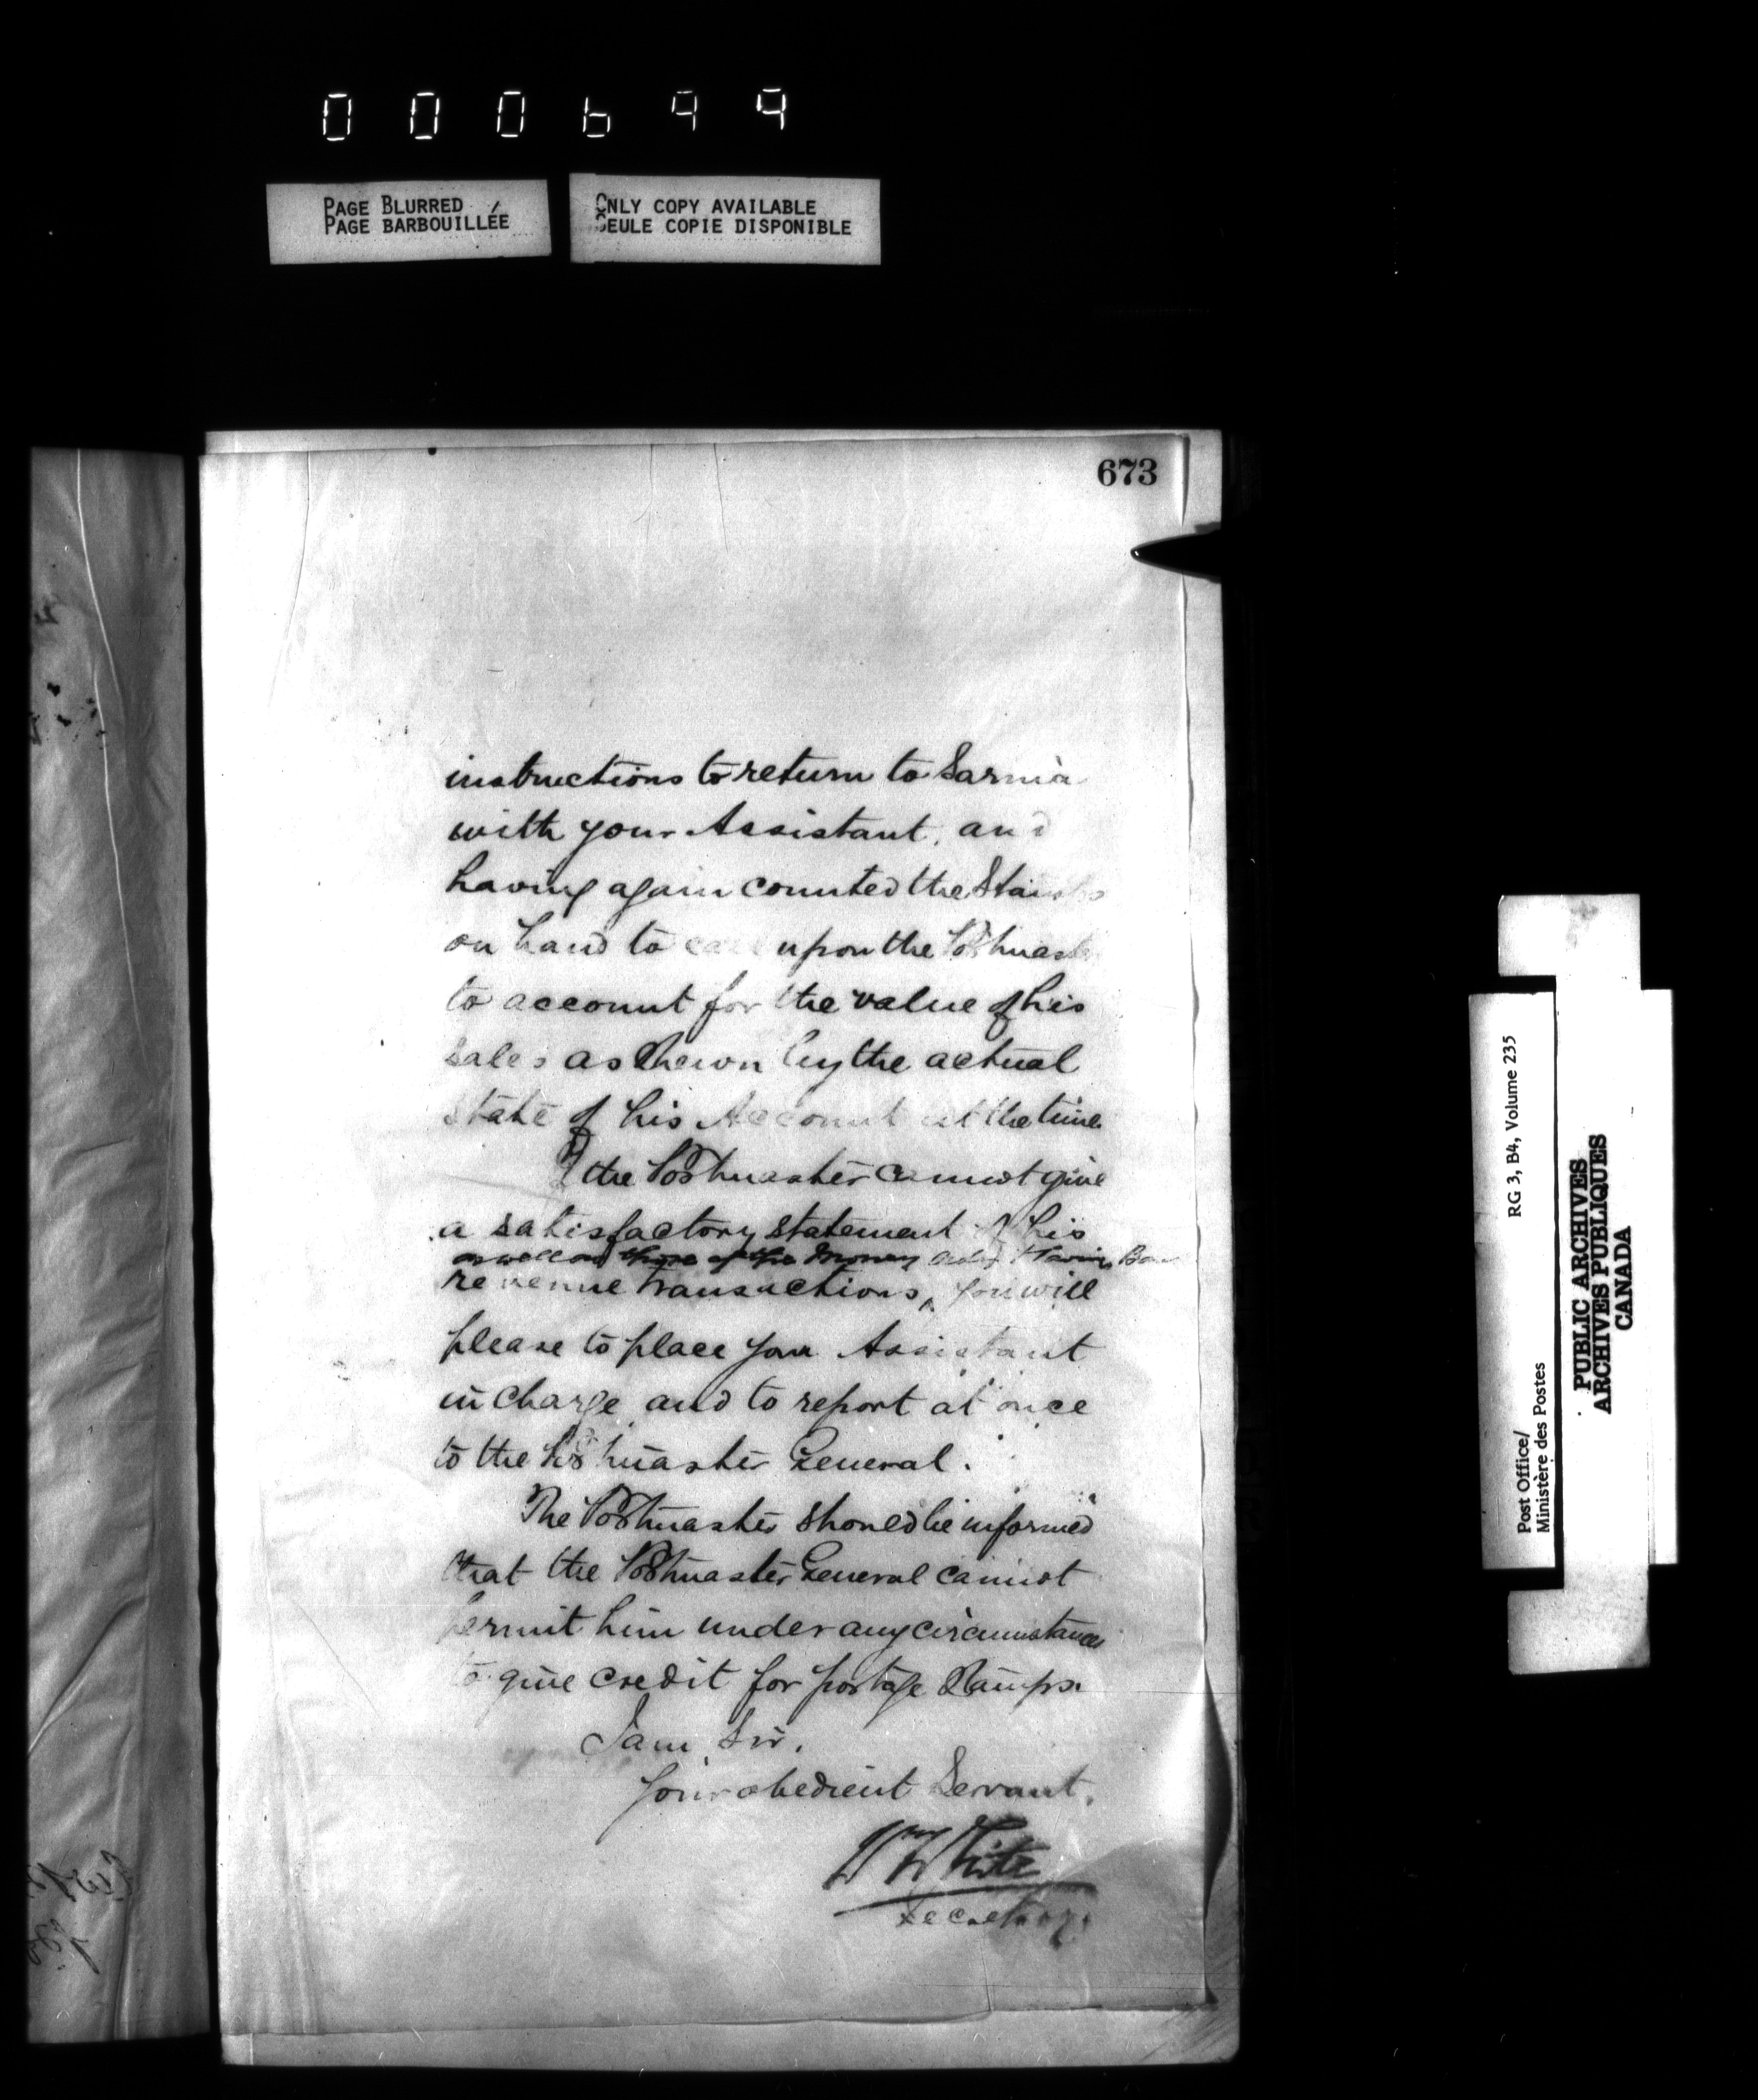 000699
PAGE BLURRED
PAGE BARBOUILLÉE
ONLY COPY AVAILABLE
SEULE COPIE DISPONIBLE
673
instructions to return to Sarnia
with your Assistant, and
having again counted the Stamps
on hand to call upon the Postmaster
to account for the value of his
sales as shewn by the actual
state of his Account at the time
If the Postmaster cannot give
a satisfactory statement of his
as well as those of the Money Order & Savings Ban
revenue transactions, you will
please to place your Assistant
in charge and to report at once
to the Postmaster General.
The Postmaster should be informed
that the Postmaster General cannot
permit him under any circumstances
to give credit for postage Stamps.
I am, Sir,
Your obedient Servant,
Wm White
Secretary
Post Office/
Ministère des Postes
RG 3, B4, Volume 235
PUBLIC ARCHIVES
ARCHIVES PUBLIQUES
CANADA